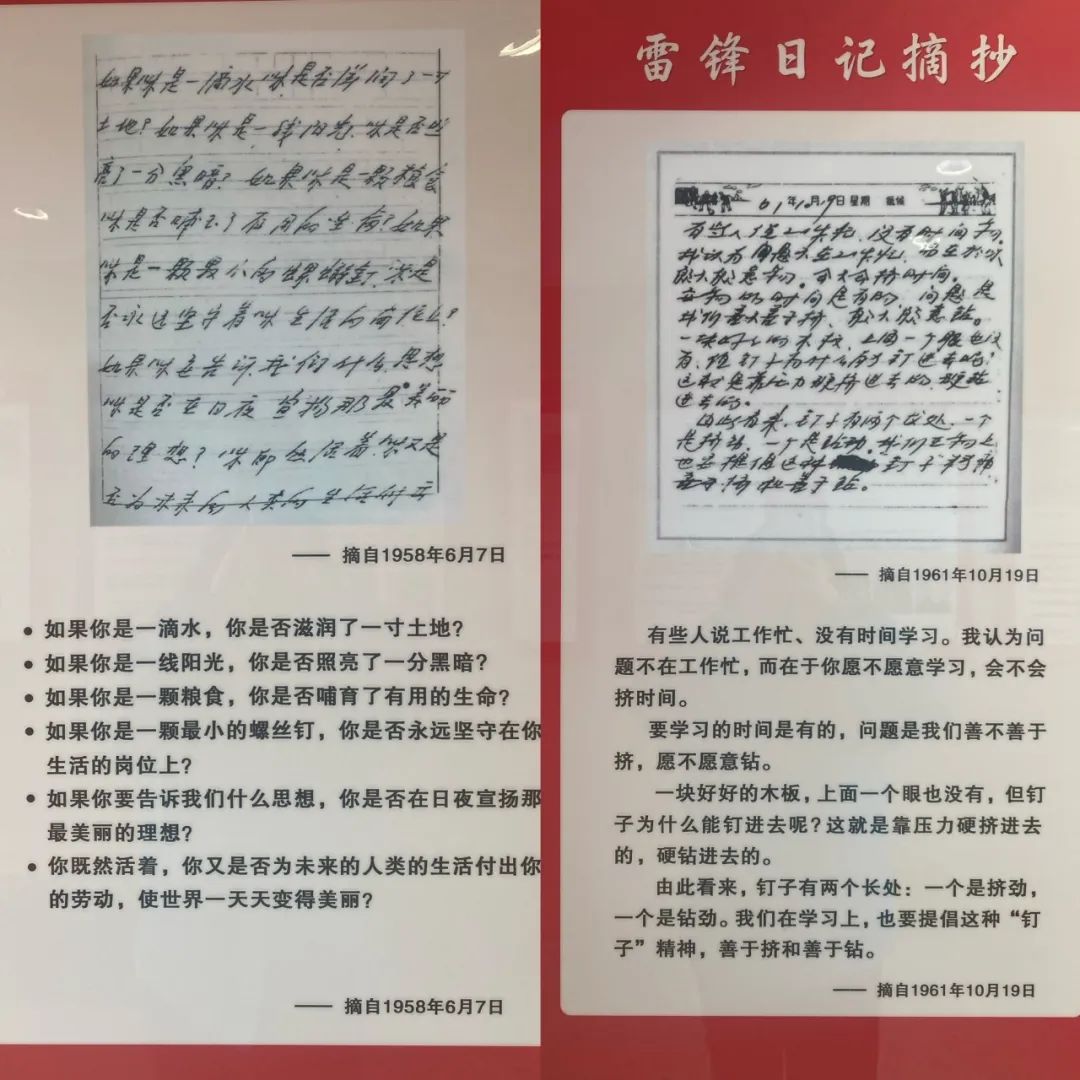 如果你是一滴水,你是否滋润了一寸
土地?如果你是一线阳光,你是否照
亮了一分黑暗?如果你是一颗粮食
你是否哺育了有用的生命?如果
你是一颗最小的螺丝钉,你是
否永远坚守着你生活的岗位上?
如果你要告诉我们什么思想
你是否在日夜宣扬那最美丽
的理想?你既然活着,你又是
否为未来的人类的生活付出
—— 摘自1958年6月7日
• 如果你是一滴水,你是否滋润了一寸土地?
• 如果你是一线阳光,你是否照亮了一分黑暗?
• 如果你是一颗粮食,你是否哺育了有用的生命?
• 如果你是一颗最小的螺丝钉,你是否永远坚守在你
生活的岗位上?
• 如果你要告诉我们什么思想,你是否在日夜宣扬那
最美丽的理想?
• 你既然活着,你又是否为未来的人类的生活付出你
的劳动,使世界一天天变得美丽?
—— 摘自1958年6月7日
雷锋日记摘抄
61年10月19日 星期
有些人说工作忙、没有时间学习.
我认为问题不在工作忙,而在于你
愿不愿意学习,会不会挤时间。
要学习的时间是有的,问题是
我们善不善于挤,愿不愿意钻。
一块好好的木板,上面一个眼也没
有,但钉子为什么能钉进去呢?
这就是靠压力硬挤进去的,硬钻
进去的。
由此看来,钉子有两个长处:一个
是挤劲,一个是钻劲,我们在学习上
也要提倡这种钉子精神
善于挤和善于钻。
—— 摘自1961年10月19日
有些人说工作忙、没有时间学习。我认为问
题不在工作忙,而在于你愿不愿意学习,会不会
挤时间。
要学习的时间是有的,问题是我们善不善于
挤,愿不愿意钻。
一块好好的木板,上面一个眼也没有,但钉
子为什么能钉进去呢?这就是靠压力硬挤进去
的,硬钻进去的。
由此看来,钉子有两个长处:一个是挤劲,
一个是钻劲。我们在学习上,也要提倡这种“钉
子”精神,善于挤和善于钻。
—— 摘自1961年10月19日